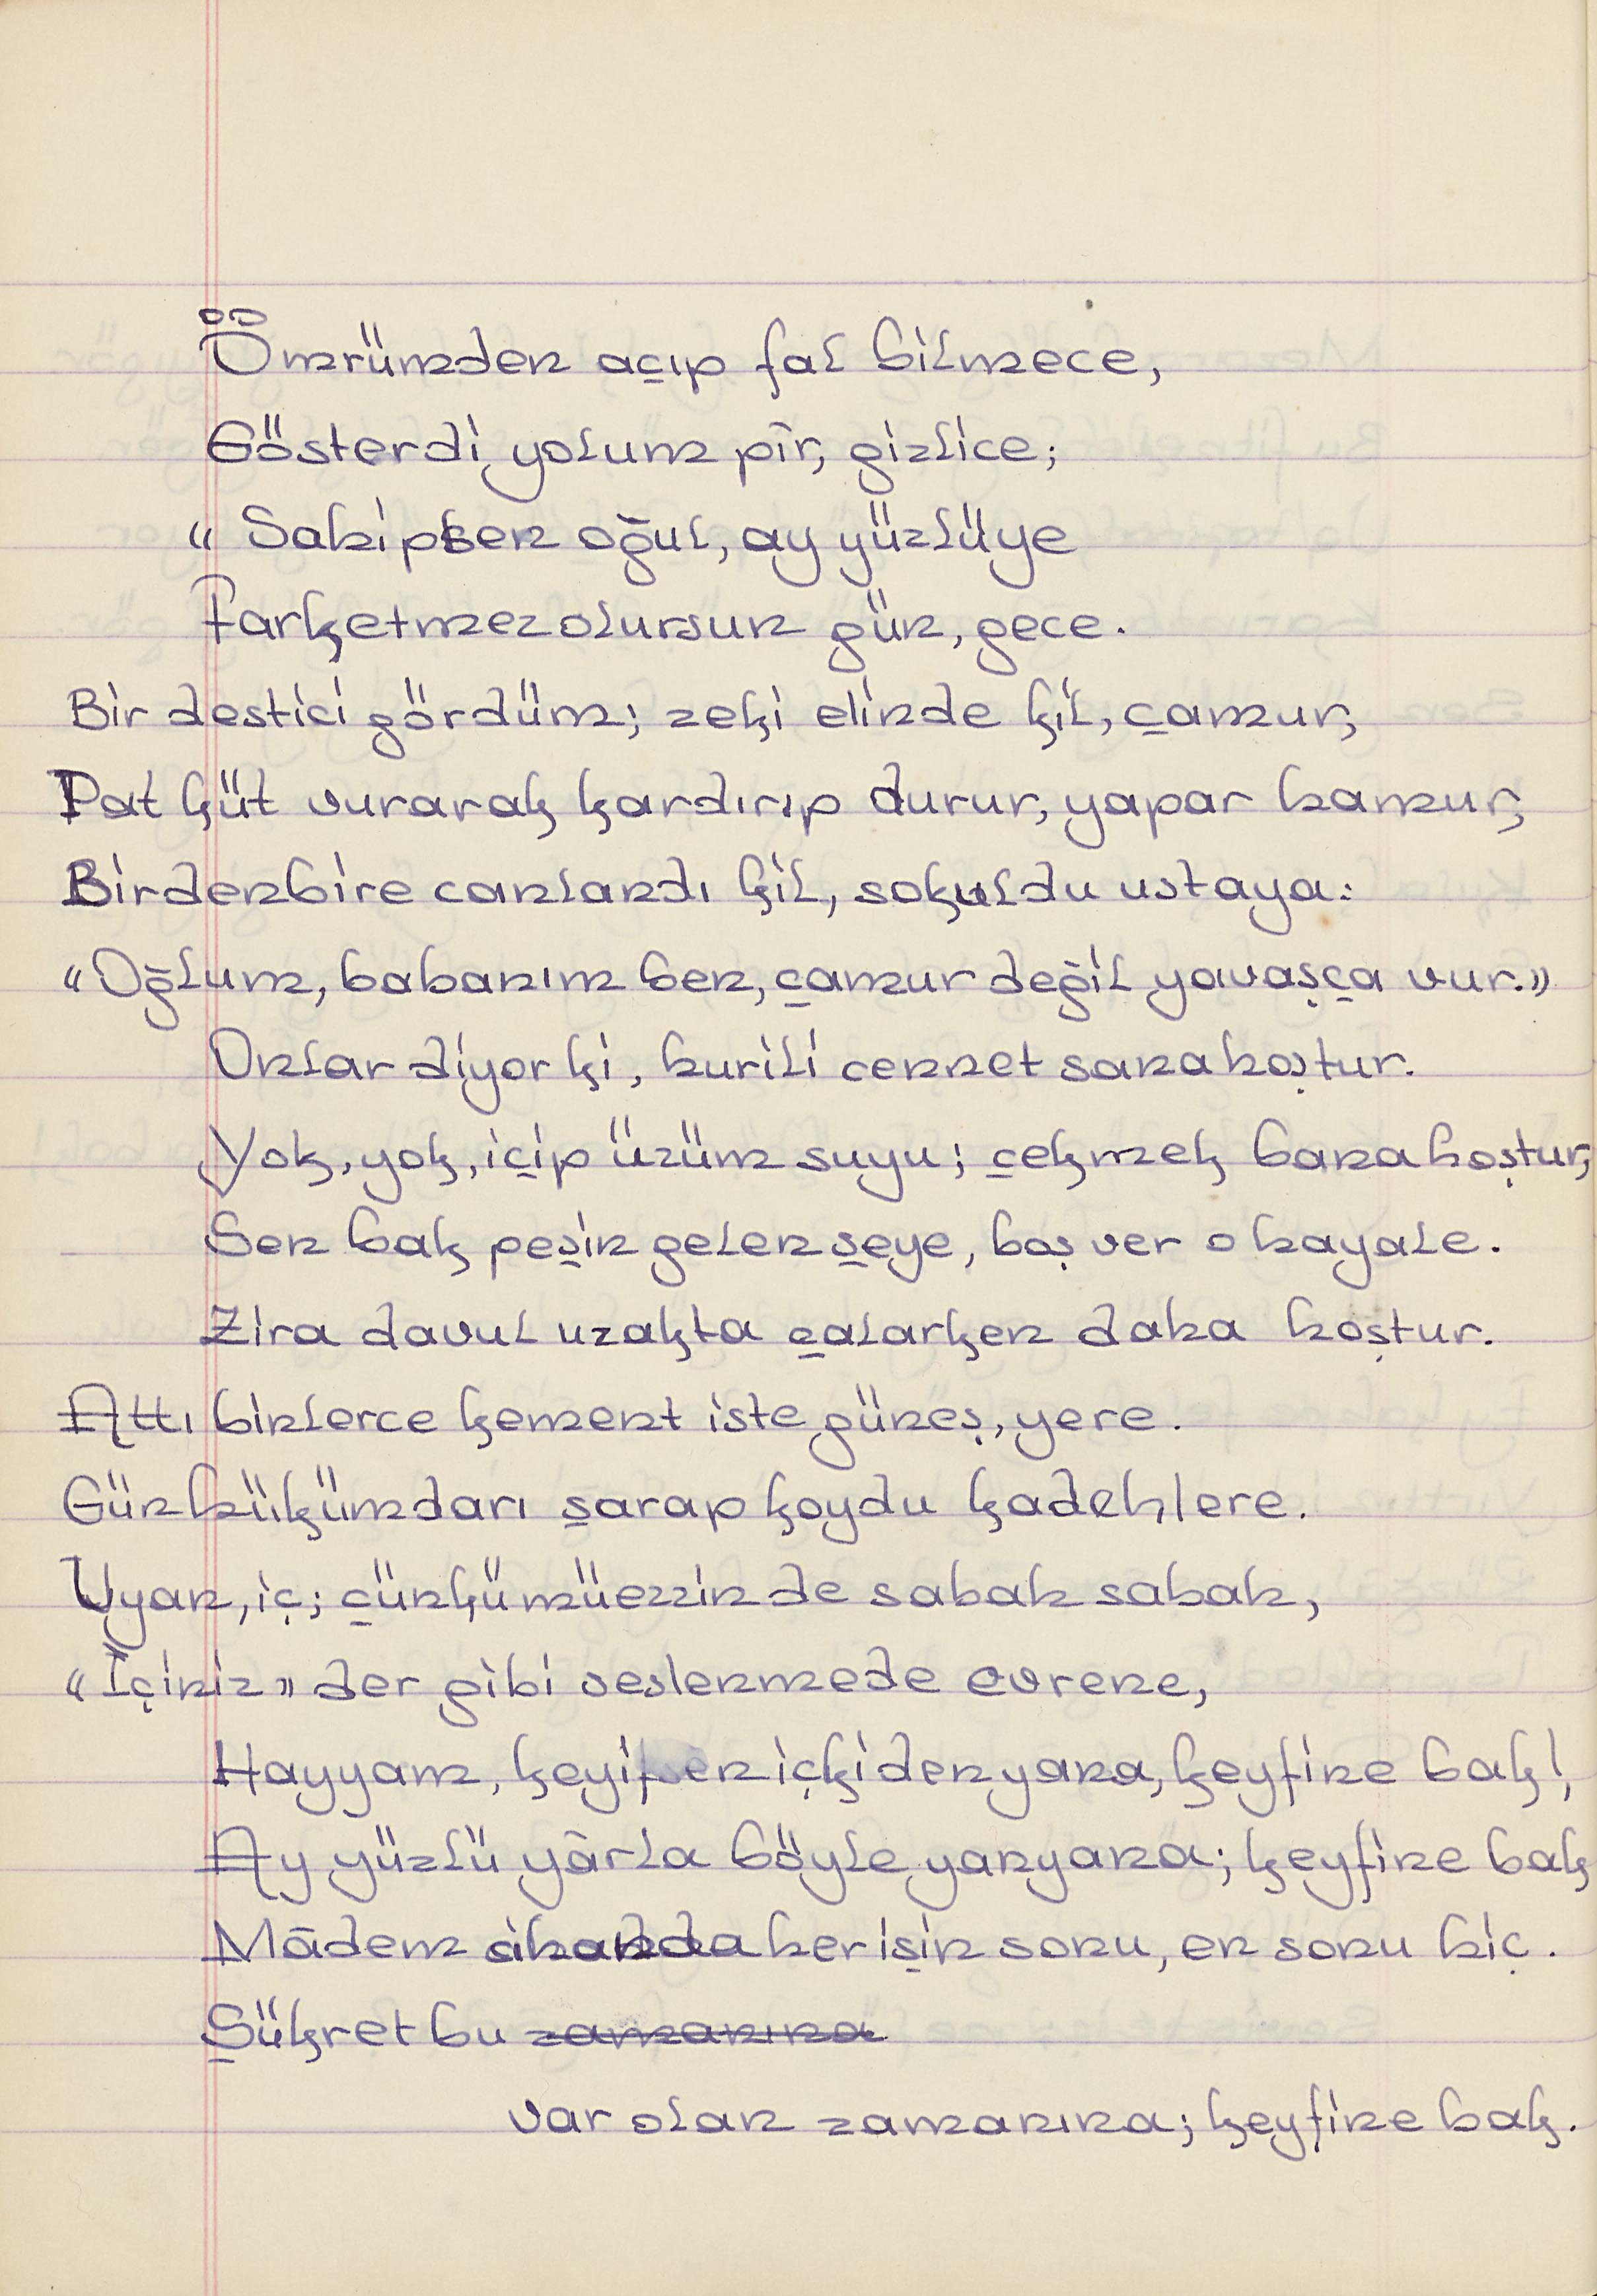 Ömrümden açıp fal bilmece,
Gösterdi yolum pîr, gizlice;
« Sahipsen oğul, ay yüzlüye
Farketmez olursun gün, gece.
Bir destici gördüm; zeki elinde kil, çamur,
Pat küt vurarak kardırıp durur, yapar hamur,
Birdenbire canlandı kil, sokuldu ustaya:
«Oğlum, babanım ben, çamur değil yavaşça vur.»
Onlar diyor ki, hurili cennet sana hoştur.
Yok, yok, içip üzüm suyu; çekmek bana hoştur,
Sen bak peşin gelen şeye, boş ver o hayale.
Zira davul uzakta çalarken daha hoştur.
Attı binlerce kement iste güneş, yere.
Gün hükümdarı şarap koydu kadehlere.
Uyan, iç; çünkü müezzin de sabah sabah,
«İçiniz» der gibi seslenmede evrene,
Hayyam, keyifsen içkiden yana, keyfine bak!,
Ay yüzlü yârla böyle yanyana; keyfine bak
Mâdem cihanda her işin sonu, en sonu hiç.
Şükret bu zamanına
var olan zamanına; keyfine bak.